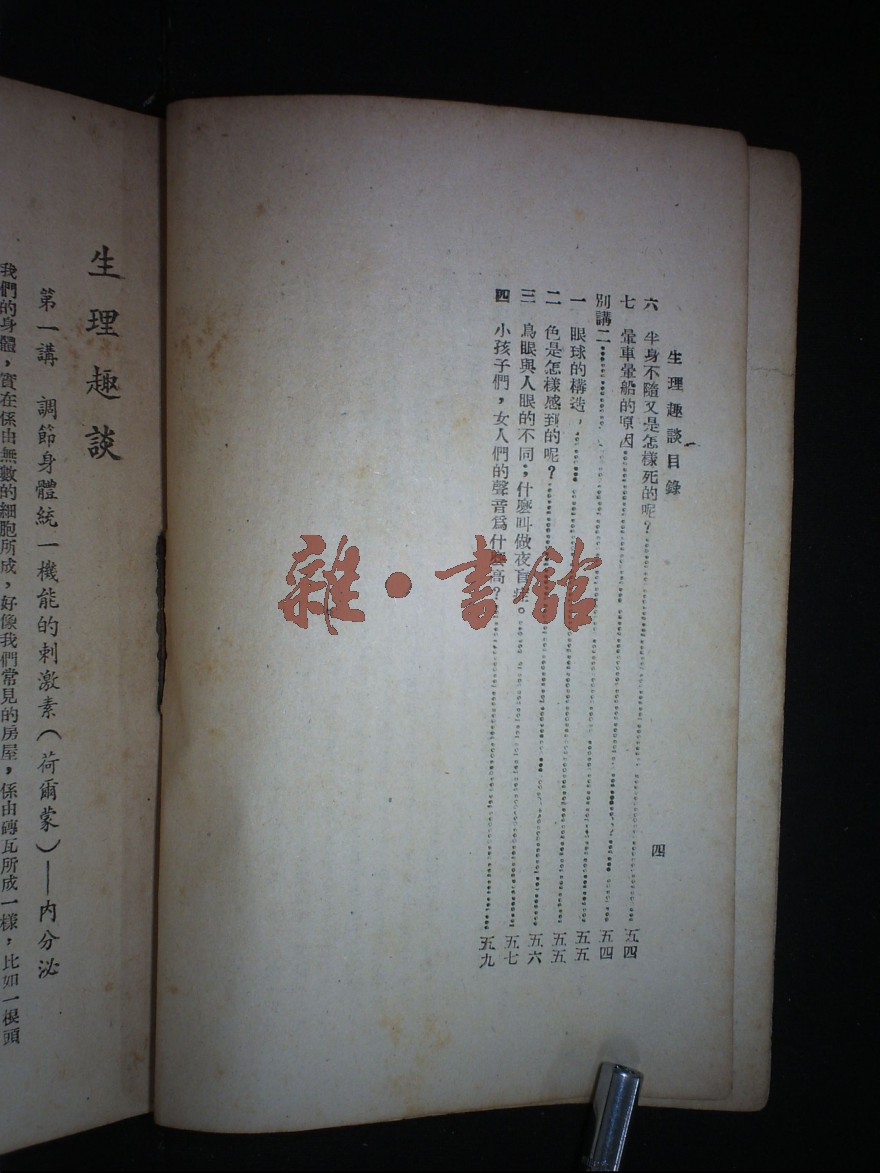 生理趣談目錄 四
六 半身不隨又是怎樣死的呢？……五四
七 暈車暈船的原因……五四
別講二……五五
一 眼球的構造，……五五
二 色是怎樣感到的呢？……五六
三 鳥眼與人眼的不同，什麼叫做夜盲症。……五七
四 小孩子們，女人們的聲音爲什麼高？……五九
生理趣談
第一講 調節身體統一機能的刺激素（荷爾蒙）——內分泌
我們的身體，實在係由無數的細胞所成，好像我們常見的房屋，係由磚瓦所成一樣，比如一根頭
雜·書館